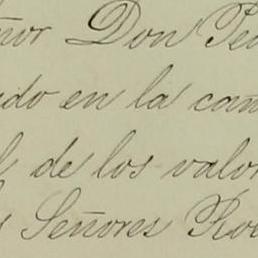 ñor Don Pe
do en la can
l de los valor
s Señores Ro